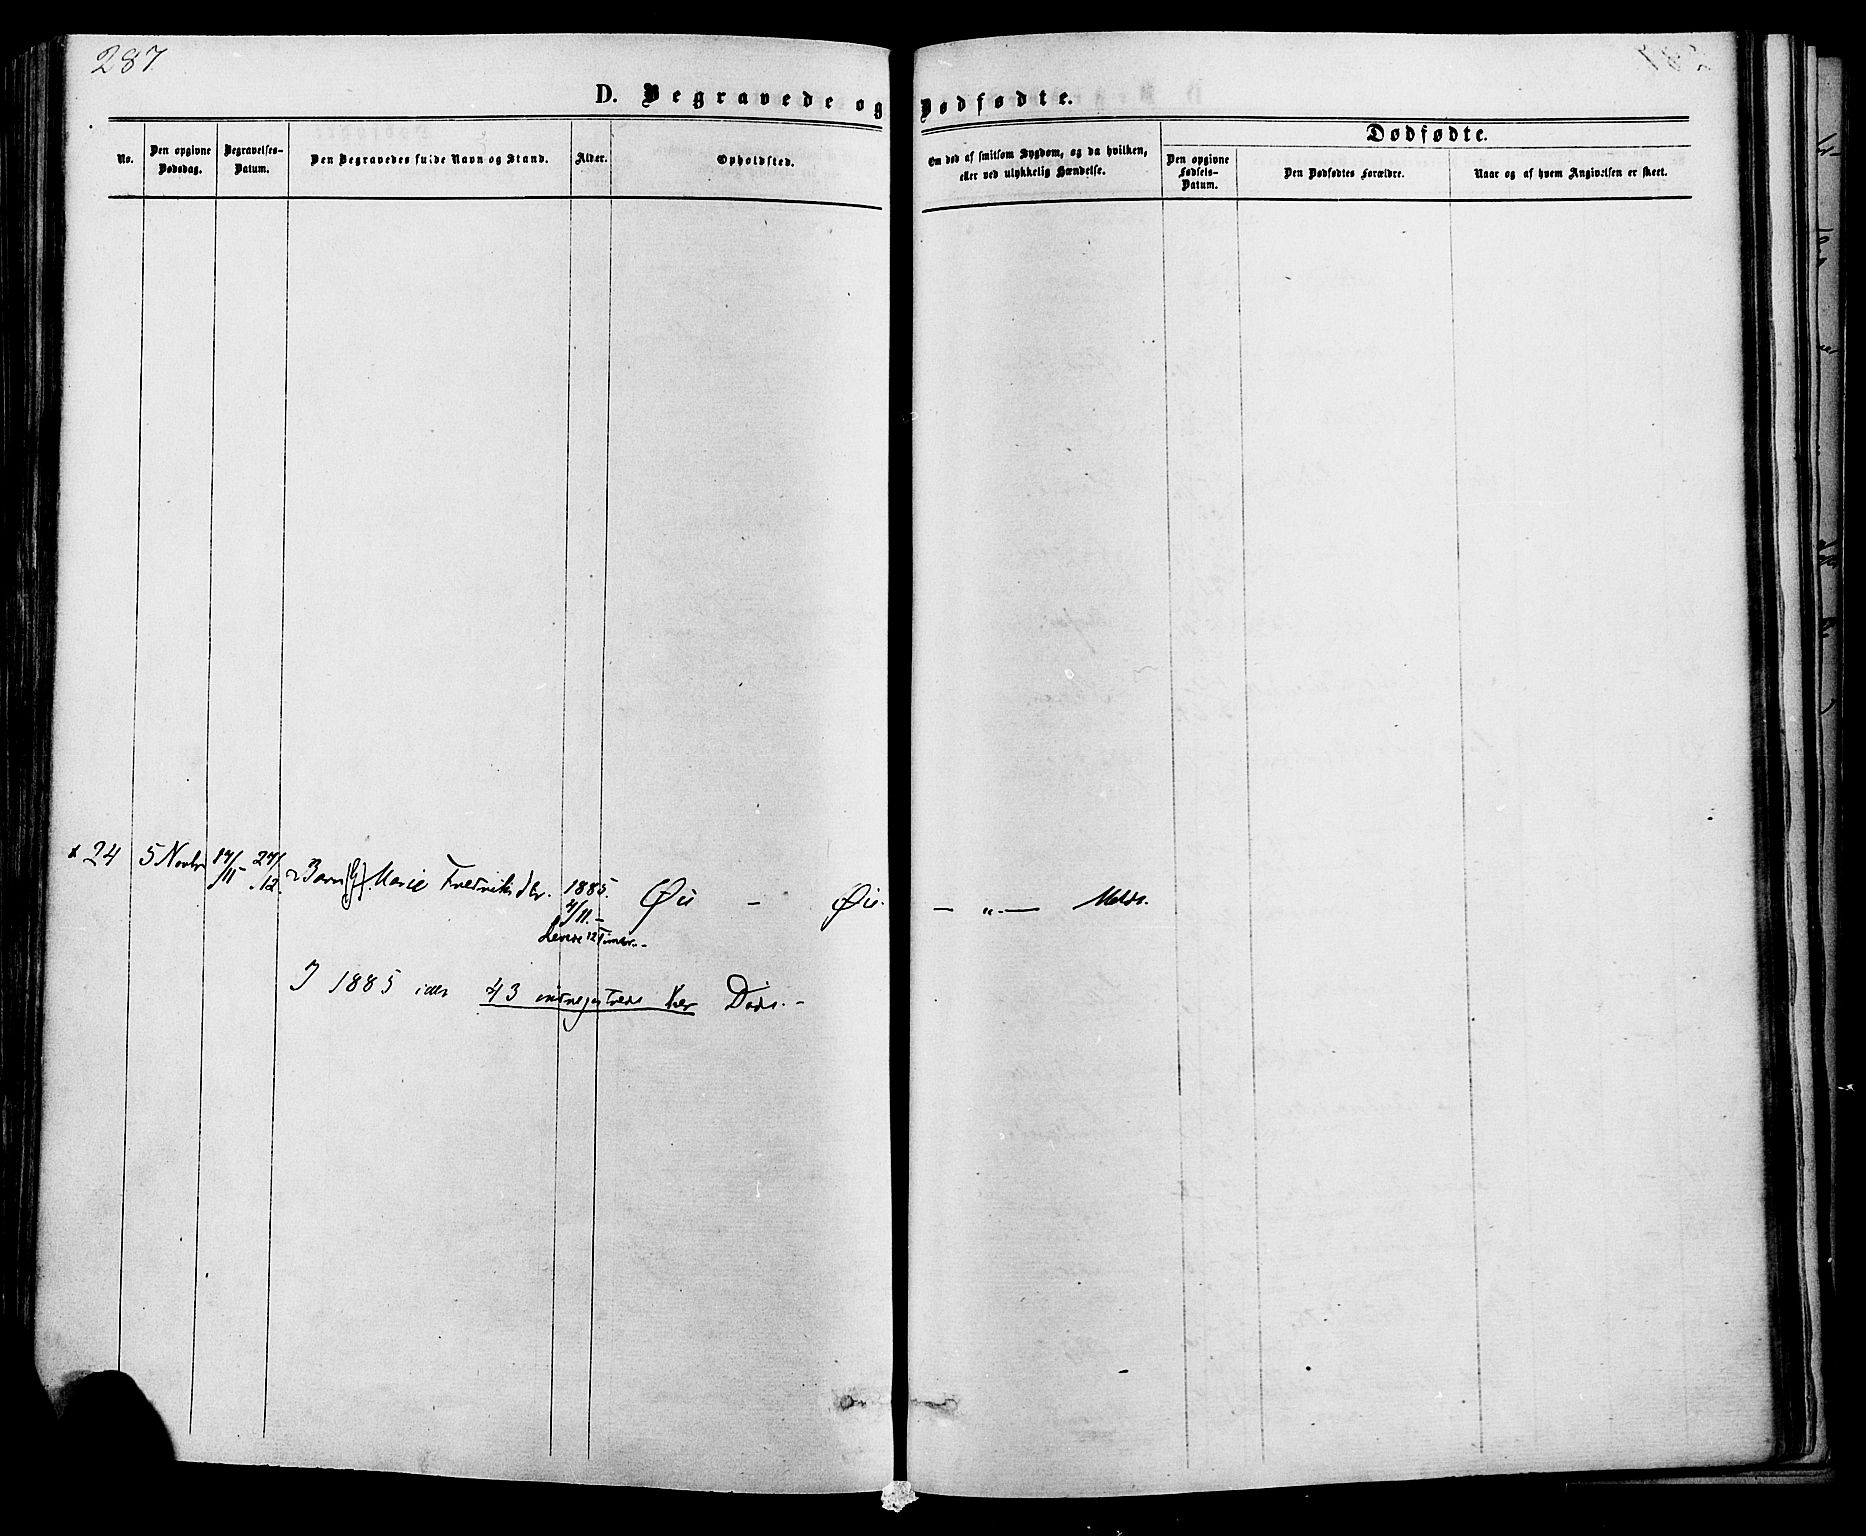 287
D. Begravede og Dødfødte.
No.
Den opgivne Dødsdag.
Begravelses-Datum.
Den Begravedes fulde Navn og Stand.
Alder.
Opholdsted.
Om død af smitsom Sygdom, og da hvilken,
eller ved ulykkelig Hændelse.
Dødfødte.
Den opgivne Fødsels-Datum.
Den Dødfødtes Forældre.
Naar og af hvem Angivelsen er skeet.
x 24 5 Novbr 17/11 27/12. Barn Marie Fredriksdtr. 1885. 4/11.- Øie - Øie. - „ - Meldt.
Levede 12 Timer.-
I 1885 43 her Døde.-